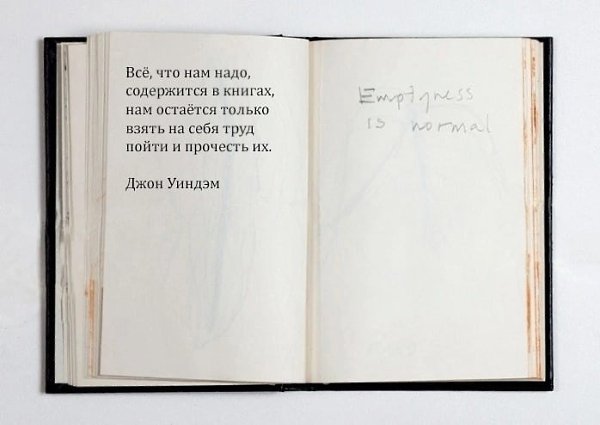 Всё, что нам надо,
содержится в книгах,
нам остаётся только
взять на себя труд
пойти и прочесть их.
Джон Уиндэм
Emptyness
is normal